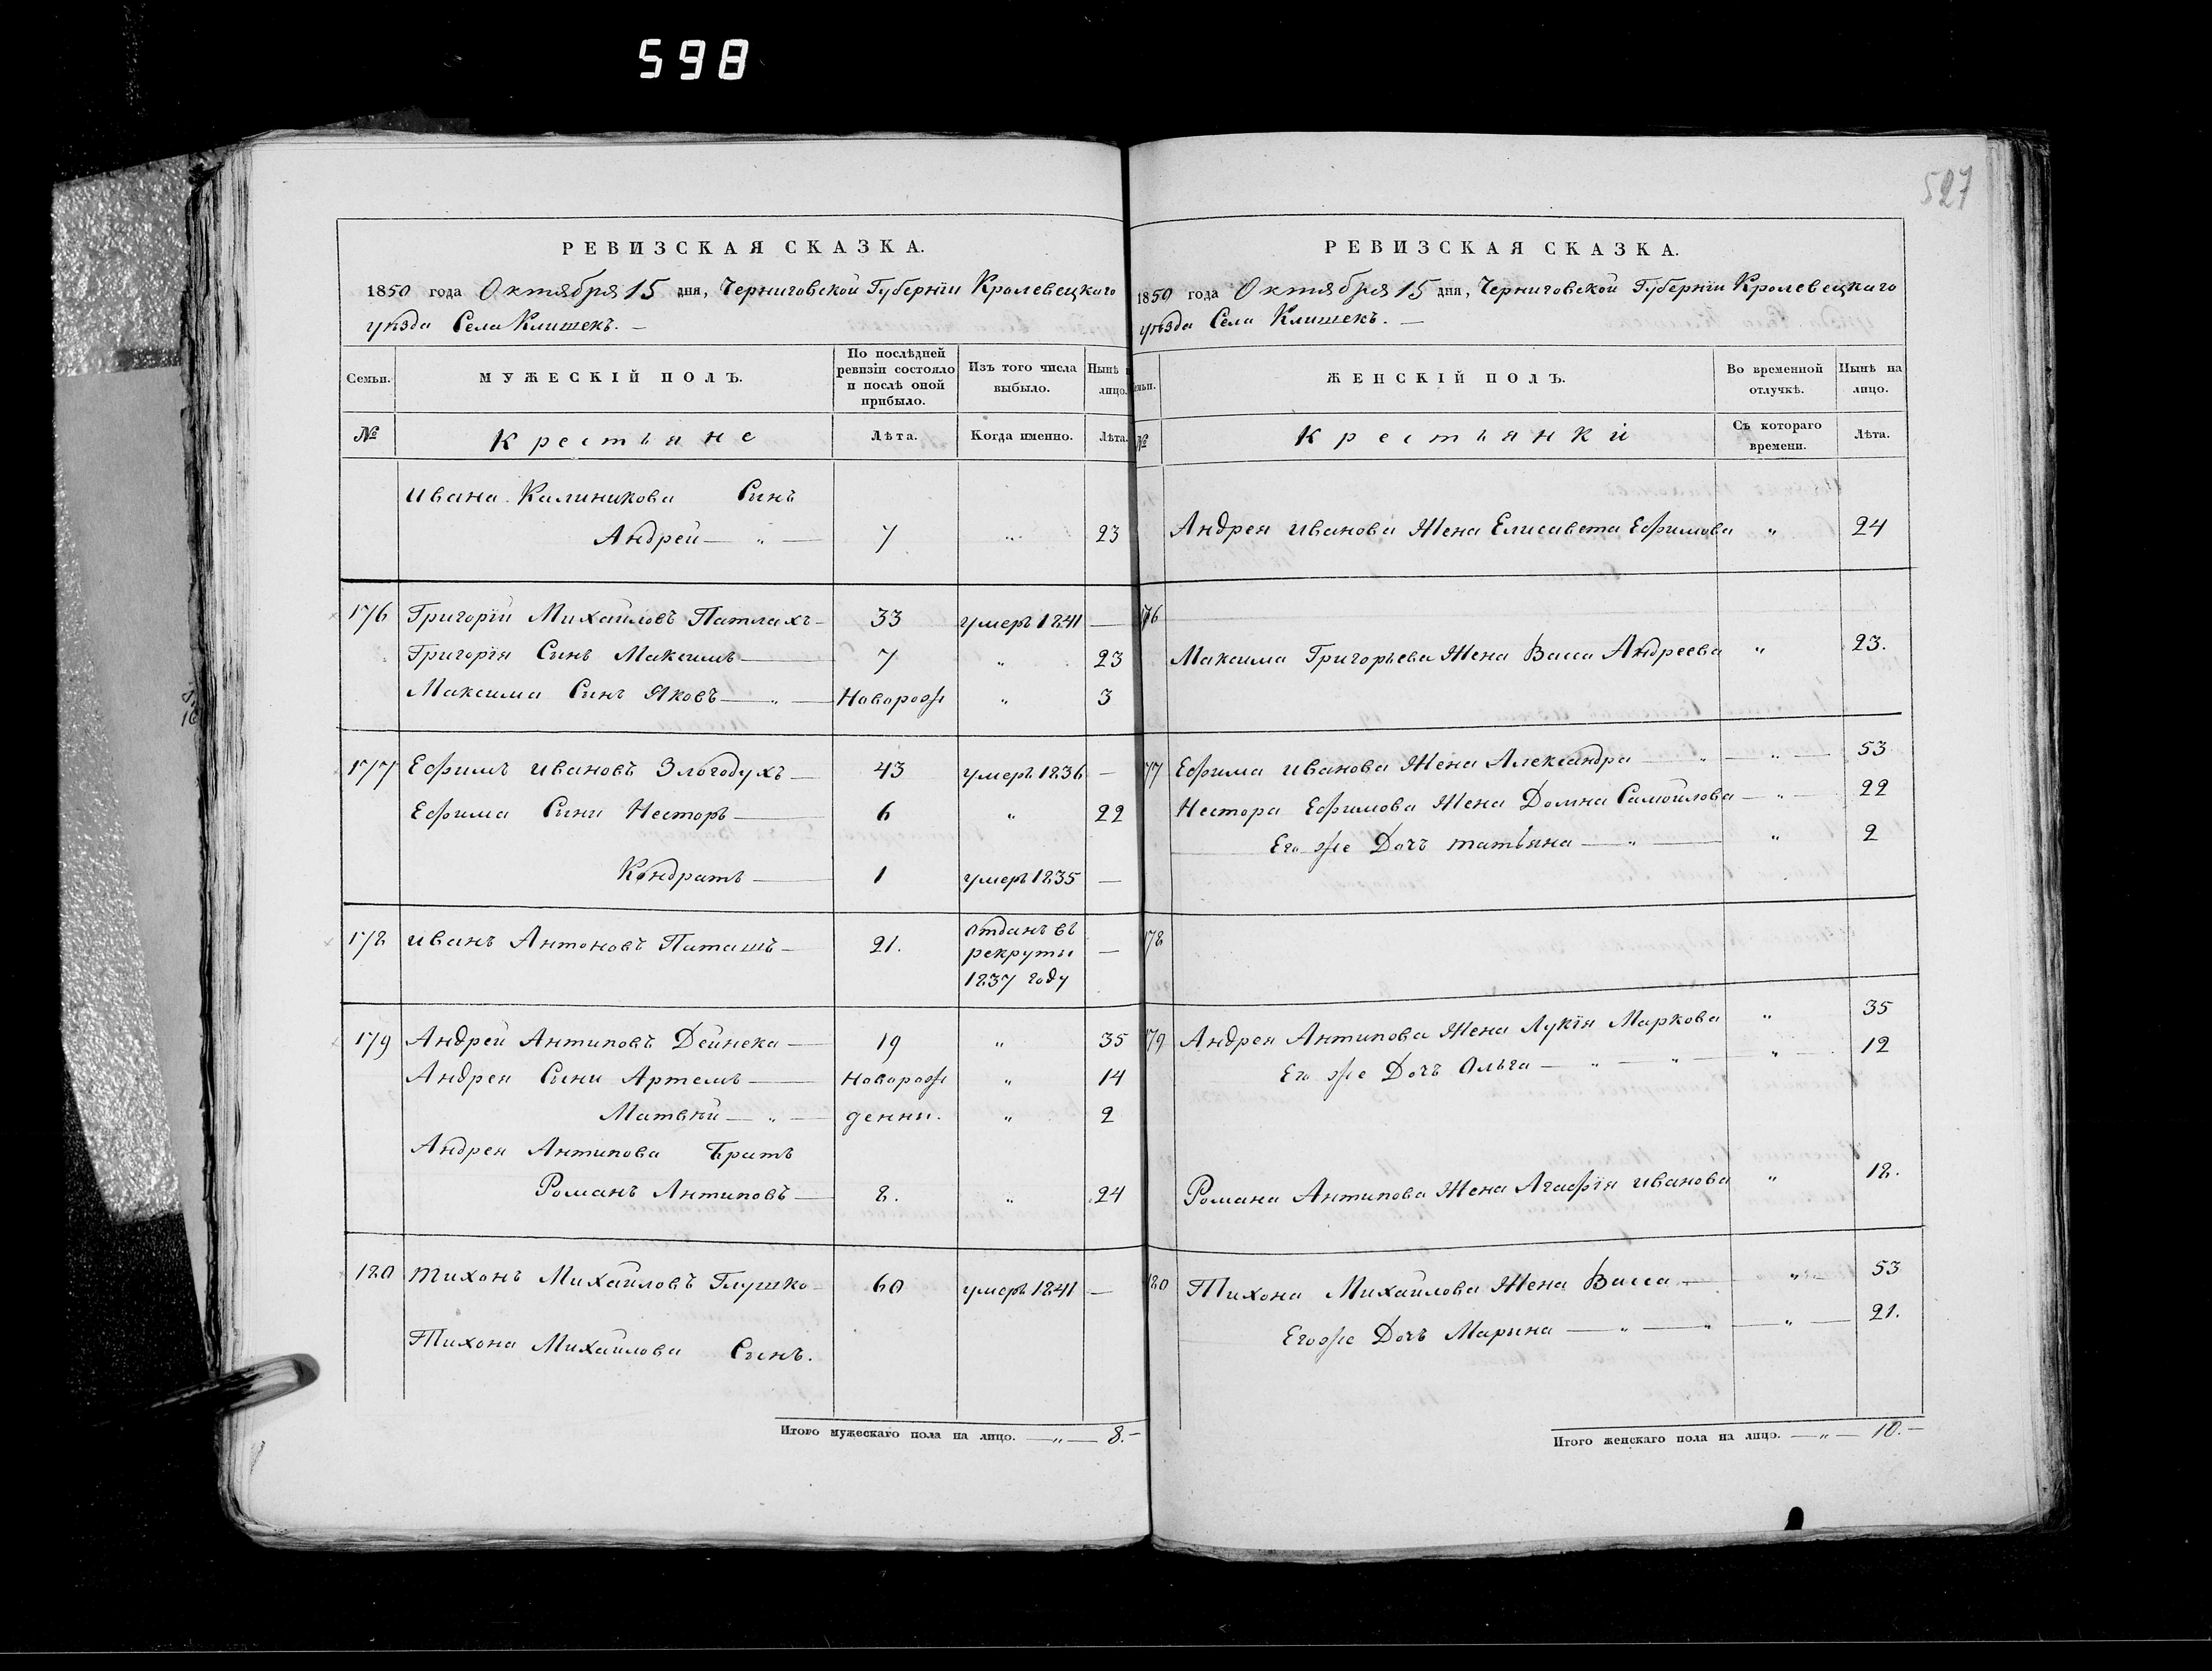 598
527
РЕВИЗСКАЯ СКАЗКА.
1850 года Октября 15 дня, Черниговской Губернїи Кролевецкаго
уѣзда Села Клишекъ. —
Семьи.
МУЖЕСКІЙ ПОЛЪ.
По послѣдней ревизіи состояло и послѣ оной прибыло.
Изъ того числа выбыло.
Нынѣ н лицо.
№ Крестьяне Лѣта. Когда именно. Лѣта.
Ивана Калиникова Синъ
Андрей — „ — 7 „ 23
176 Григорїй Михайловъ Патлахъ — 33 умеръ 1841 —
Григорїя Сынъ Максимъ — 7 „ 23
Максима Синъ Яковъ — „ — Новорож „ 3
177 Ефимъ Ивановъ Злыгодухъ — 43 умеръ 1836 —
Ефима Сыни Несторъ — 6 „ 22
Кондратъ — 1 умеръ 1835 —
178 Иванъ Антоновъ Паташъ — 21. отданъ въ рекруты 1837 году —
179 Андрей Антиповъ Дейнека — 19 „ 35
Андрея Сыни Артемъ — Новорож „ 14
Матвѣй — „ — денни. „ 2
Андрея Антипова Братъ
Романъ Антиповъ — 8. „ 24
180 Тихонъ Михайловъ Глушко — 60 умеръ 1841 —
Тихона Михайлова Сынъ.
Итого мужескаго пола на лицо. — „ — 8. —
РЕВИЗСКАЯ СКАЗКА.
1850 года Октября 15 дня, Черниговской Губернїи Кролевецкаго
уѣзда Села Клишекъ. —
емьи.
ЖЕНСКІЙ ПОЛЪ.
Во временной отлучкѣ.
Нынѣ на лицо.
№ Крестьянки Съ котораго времени. Лѣта.
Андрея Иванова Жена Елисавета Ефимова „ 24
176
Максима Григорьева Жена Васса Андреева „ 23.
77 Ефима Иванова Жена Александра — „ — „ — 53
Нестора Ефимова Жена Домна Самойлова — „ — 22
Его же Дочь Татьяна — „ — „ 2
178
179 Андрея Антипова Жена Лукїя Маркова „ 35
Его же Дочъ Ольга — „ — „ — „ — 12
Романа Антипова Жена Агафїя Иванова „ 18.
180 Тихона Михайлова Жена Васса — „ — 53
Егоже Дочъ Марина — „ — „ — „ — 21.
Итого женскаго пола на лицо. — „ — 10. —